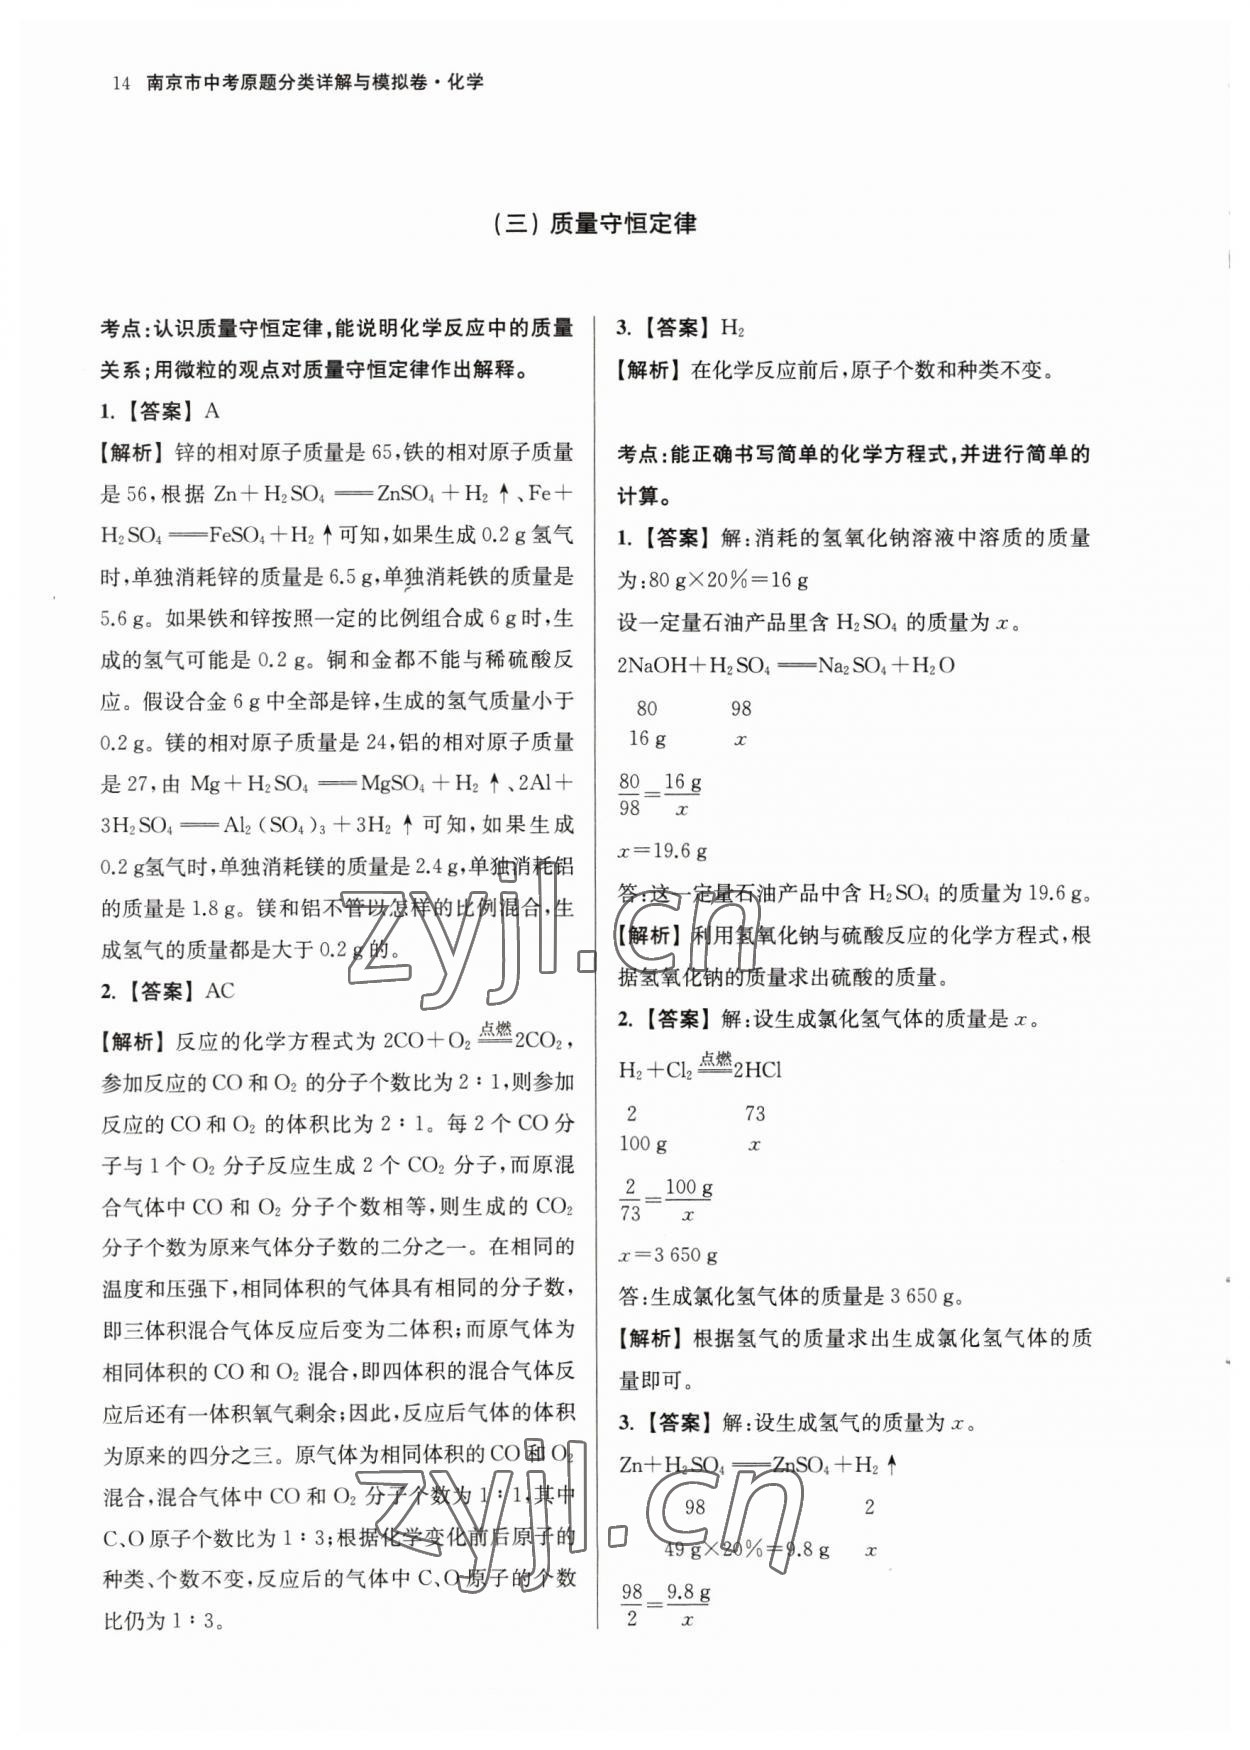 14 南京市中考原题分类详解与模拟卷·化学
(三) 质量守恒定律
考点:认识质量守恒定律,能说明化学反应中的质量
关系;用微粒的观点对质量守恒定律作出解释。
1.【答案】A
【解析】锌的相对原子质量是 65,铁的相对原子质量
是 56,根据 Zn+H₂SO₄══ZnSO₄+H₂↑、Fe+
H₂SO₄══FeSO₄+H₂↑可知,如果生成 0.2 g 氢气
时,单独消耗锌的质量是 6.5 g,单独消耗铁的质量是
5.6 g。如果铁和锌按照一定的比例组合成 6 g 时,生
成的氢气可能是 0.2 g。铜和金都不能与稀硫酸反
应。假设合金 6 g 中全部是锌,生成的氢气质量小于
0.2 g。镁的相对原子质量是 24,铝的相对原子质量
是 27,由 Mg+H₂SO₄══MgSO₄+H₂↑、2Al+
3H₂SO₄══Al₂(SO₄)₃+3H₂↑可知,如果生成
0.2 g氢气时,单独消耗镁的质量是 2.4 g,单独消耗铝
的质量是 1.8 g。镁和铝不管以怎样的比例混合,生
成氢气的质量都是大于 0.2 g 的。
2.【答案】AC
【解析】反应的化学方程式为 2CO+O₂ 点燃══ 2CO₂,
参加反应的 CO 和 O₂ 的分子个数比为 2∶1,则参加
反应的 CO 和 O₂ 的体积比为 2∶1。每 2 个 CO 分
子与 1 个 O₂ 分子反应生成 2 个 CO₂ 分子,而原混
合气体中 CO 和 O₂ 分子个数相等,则生成的 CO₂
分子个数为原来气体分子数的二分之一。在相同的
温度和压强下,相同体积的气体具有相同的分子数,
即三体积混合气体反应后变为二体积;而原气体为
相同体积的 CO 和 O₂ 混合,即四体积的混合气体反
应后还有一体积氧气剩余;因此,反应后气体的体积
为原来的四分之三。原气体为相同体积的 CO 和 O₂
混合,混合气体中 CO 和 O₂ 分子个数为 1∶1,其中
C、O 原子个数比为 1∶3;根据化学变化前后原子的
种类、个数不变,反应后的气体中 C、O 原子的个数
比仍为 1∶3。
3.【答案】H₂
【解析】在化学反应前后,原子个数和种类不变。
考点:能正确书写简单的化学方程式,并进行简单的
计算。
1.【答案】解:消耗的氢氧化钠溶液中溶质的质量
为:80 g×20%=16 g
设一定量石油产品里含 H₂SO₄ 的质量为 x。
2NaOH+H₂SO₄══Na₂SO₄+H₂O
80 98
16 g x
80/98=16 g/x
x=19.6 g
答:这一定量石油产品中含 H₂SO₄ 的质量为 19.6 g。
【解析】利用氢氧化钠与硫酸反应的化学方程式,根
据氢氧化钠的质量求出硫酸的质量。
2.【答案】解:设生成氯化氢气体的质量是 x。
H₂+Cl₂ 点燃══ 2HCl
2 73
100 g x
2/73=100 g/x
x=3 650 g
答:生成氯化氢气体的质量是 3 650 g。
【解析】根据氢气的质量求出生成氯化氢气体的质
量即可。
3.【答案】解:设生成氢气的质量为 x。
Zn+H₂SO₄══ZnSO₄+H₂↑
98 2
49 g×20%=9.8 g x
98/2=9.8 g/x
zyjl.cn
zyjl.cn